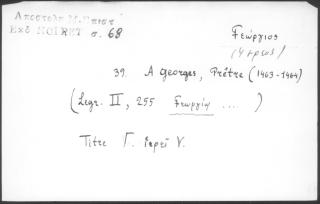 Ἀποστόλη Μ. Ἐπιστ
Ἐκδ NOIRET σ. 68
Γεώργιος
(ἱερεύς)
39. A Georges, Prêtre (1463-1464)
(Legr. II, 255 Γεωργίῳ .... )
Titre Γ. ἱερεῖ V.